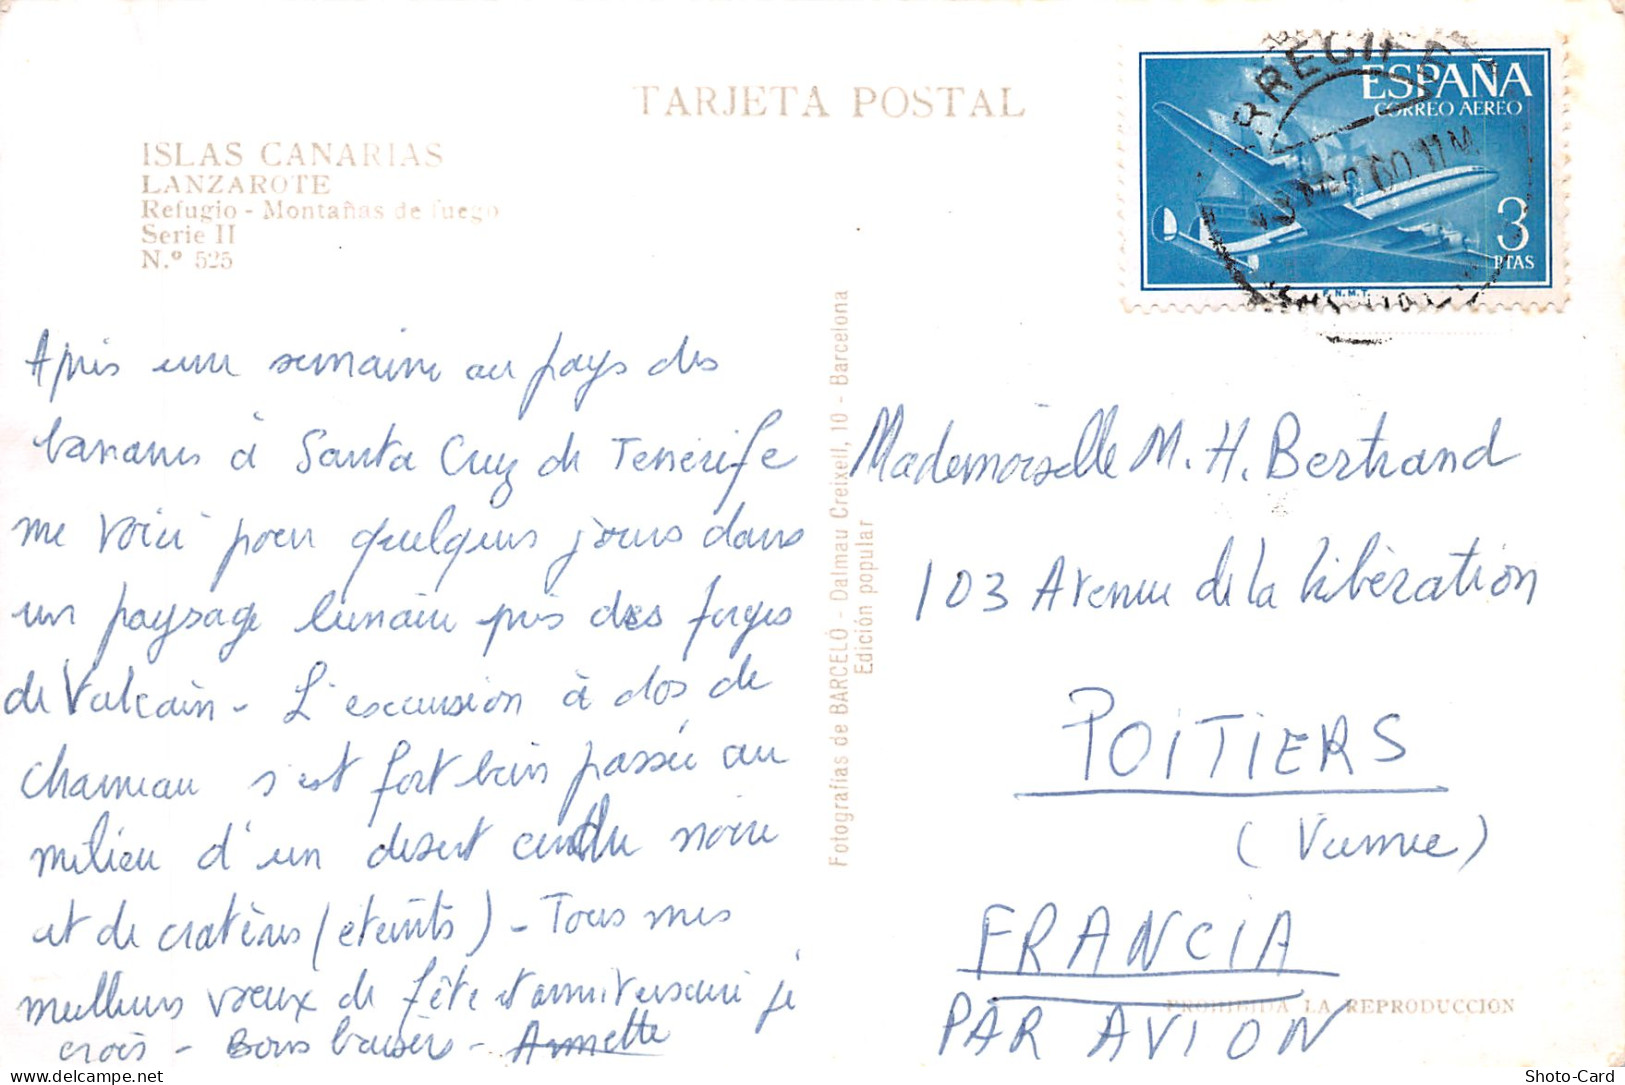 TARJETA POSTAL
ISLAS CANARIAS
LANZAROTE
Refugio - Montañas de fuego
Serie II
N.º 525
ESPAÑA
CORREO AEREO
3
PTAS
F.N.M.T.
RRECIF
60.11M
Après une semaine au pays des
bananes à Santa Cruz de Tenerife
me voici pour quelques jours dans
un paysage lunaire près des forges
de Vulcain - L'excursion à dos de
chameau s'est fort bien passée au
milieu d'un désert cendre noire
et de cratères (éteints) - Tous mes
meilleurs voeux de fête et anniversaire je
crois - Bons baisers - Annette
Fotografías de BARCELÓ - Dalmau Creixell, 10 - Barcelona
Edición popular
Mademoiselle M. H. Bertrand
103 Avenue de la libération
POITIERS
(Vienne)
FRANCIA
PAR AVION
PROHIBIDA LA REPRODUCCION
Shoto-Card